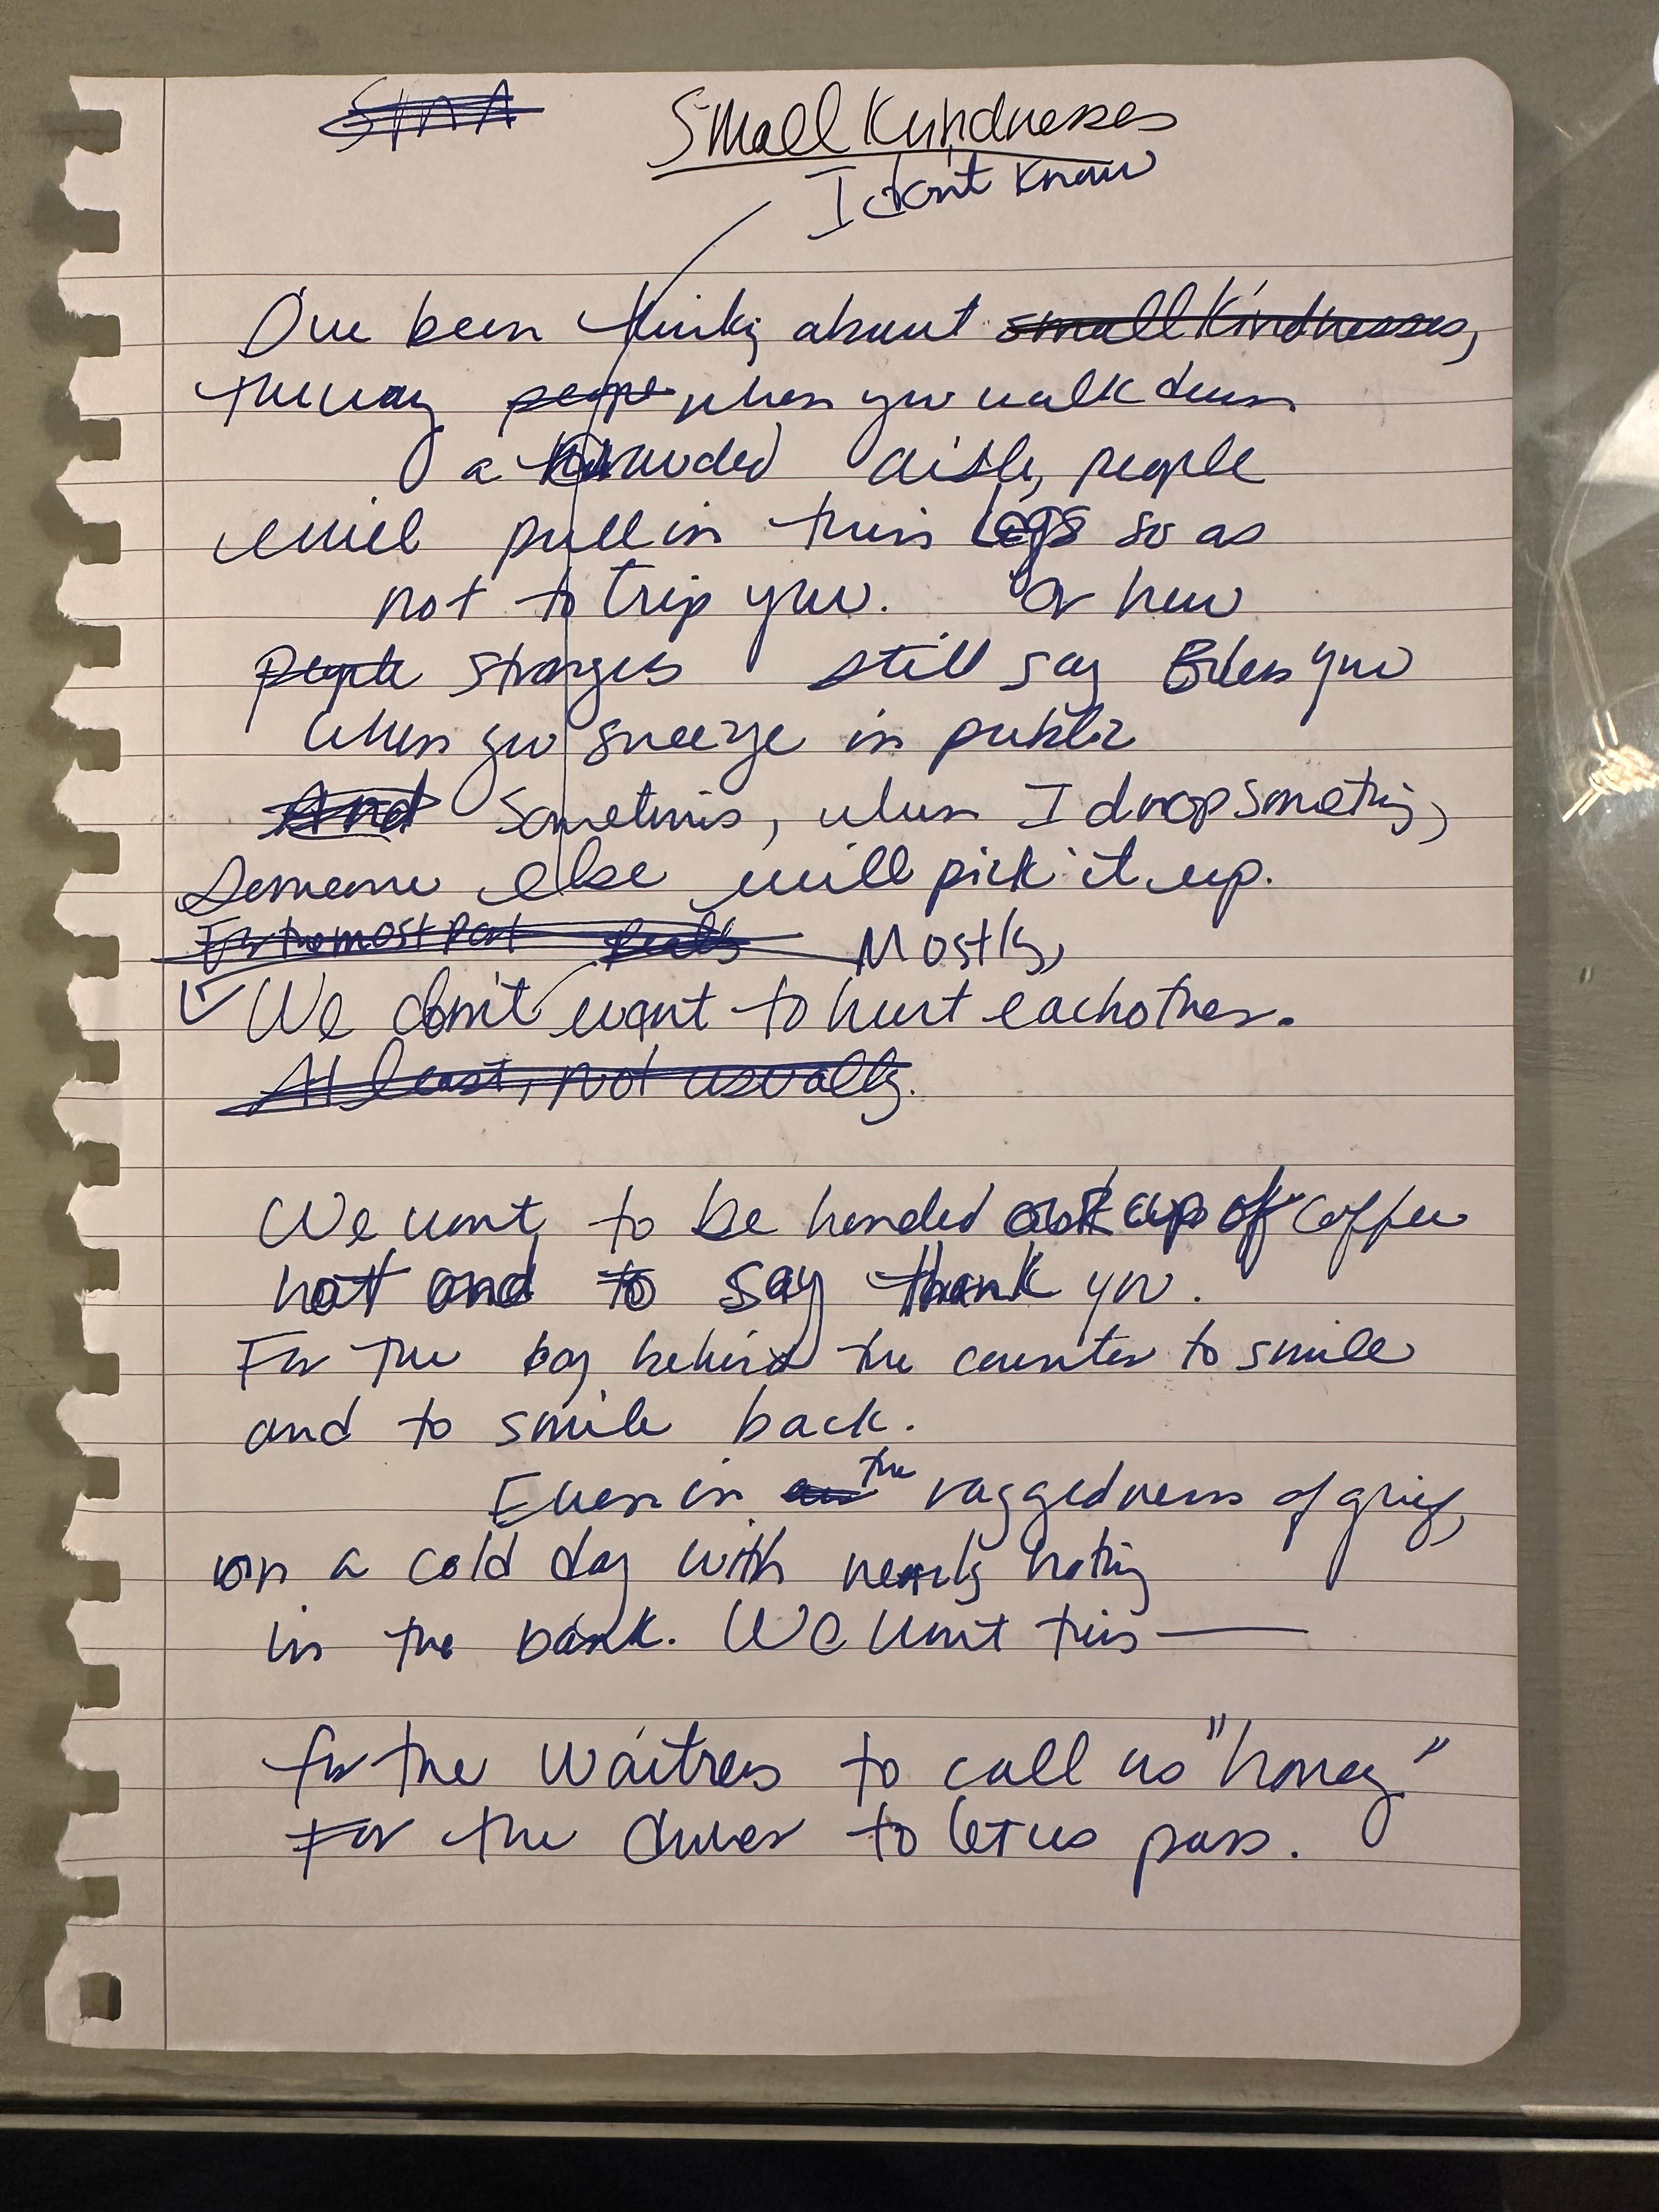 Small Kindnesses
I don't know
I've been thinking about small kindnesses,
the way people when you walk down
a crowded aisle, people
will pull in their legs so as
not to trip you. Or how
people strangers still say Bless you
when you sneeze in public
And Sometimes, when I drop something,
Someone else will pick it up.
For the most part Mostly,
We don't want to hurt each other.
At least, not usually.
We want to be handed our cup of coffee
hot and to say thank you.
For the boy behind the counter to smile
and to smile back.
the
Even in raggedness of grief,
on a cold day with nearly nothing
in the bank. We want this —
for the waitress to call us "honey"
For the driver to let us pass.